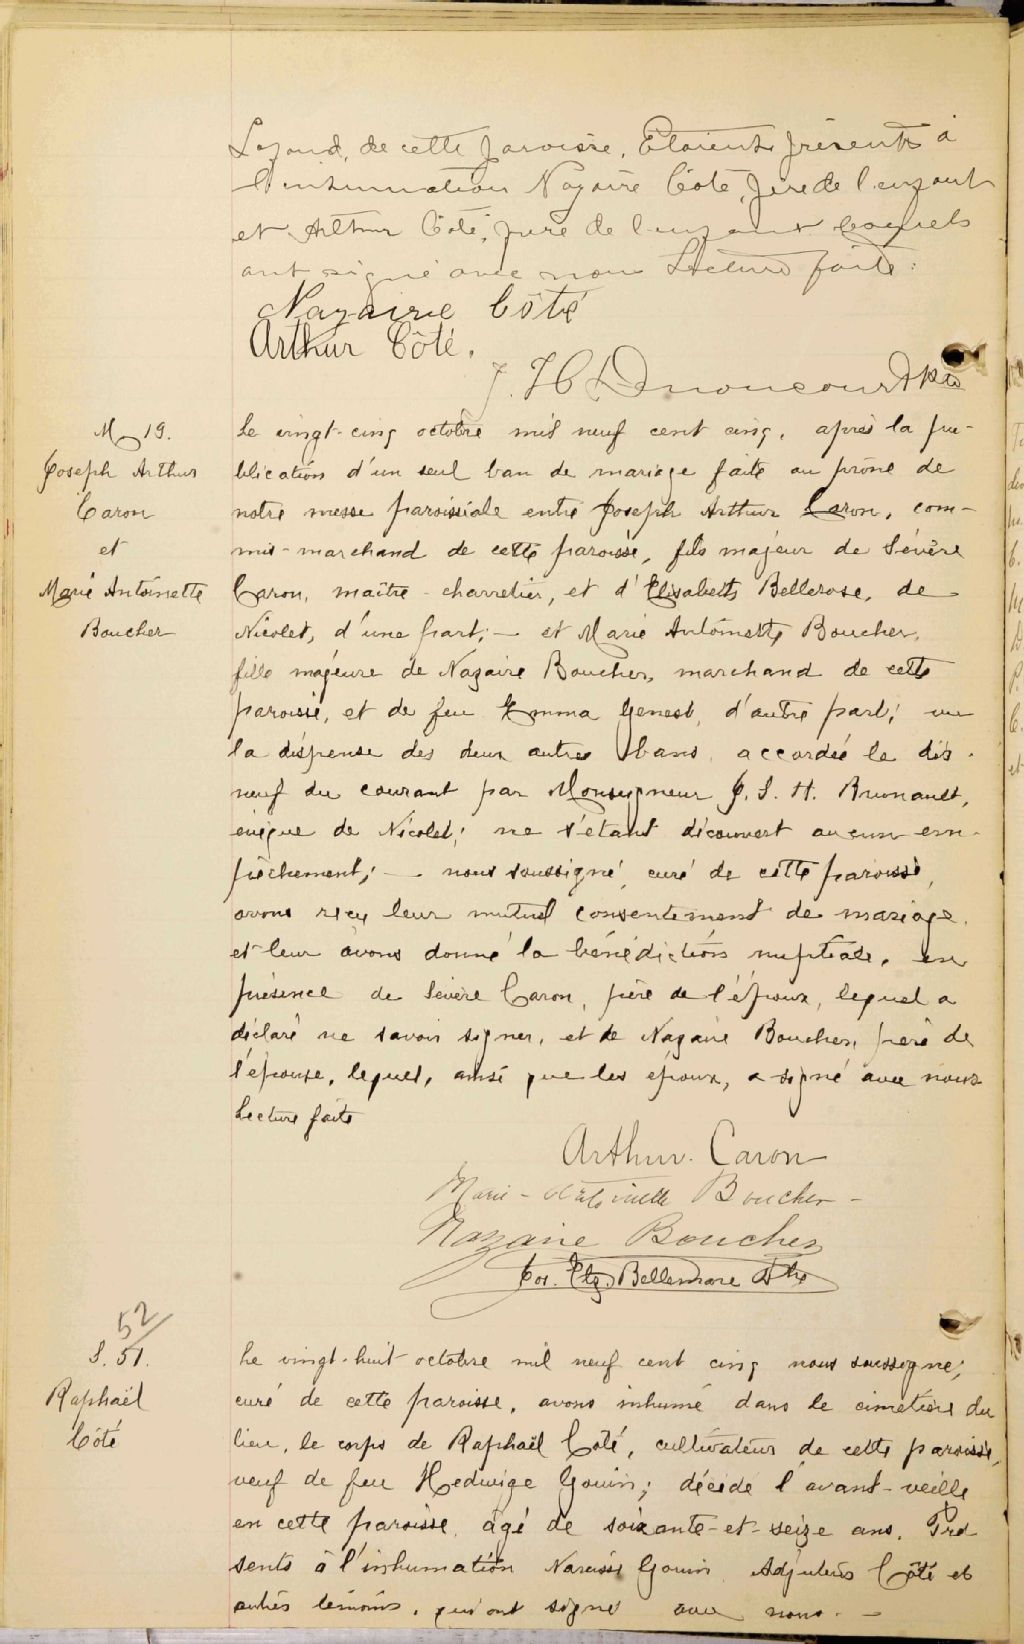 de cette paroisse. Etaient présents à
l'inhumation Nazaire Côté, père de l'enfant
et Arthur Côté, de l'enfant lesquels
ont signé avec nous Lecture faite.
Nazaire Côté
Arthur Côté.
J. H. Ptre
M 19.
Joseph Arthur
Caron
et
Marie Antoinette
Boucher
Le vingt-cinq octobre mil neuf cent cinq, après la pu-
blication d'un seul ban de mariage faite au prône de
notre messe paroissiale entre Joseph Arthur Caron, com-
mis-marchand de cette paroisse, fils majeur de Sévère
Caron, maître-charretier, et d'Elisabeth Bellerose, de
Nicolet, d'une part; — et Marie Antoinette Boucher,
fille majeure de Nazaire Boucher, marchand de cette
paroisse, et de feu Emma Genest, d'autre part; vu
la dispense des deux autres bans, accordée le dix-
neuf du courant par Monseigneur J. S. H. Brunault,
évêque de Nicolet; ne s'étant découvert aucun em-
pêchement; — nous soussigné, curé de cette paroisse,
avons reçu leur mutuel consentement de mariage,
et leur avons donné la bénédiction nuptiale, en
présence de Sévère Caron, père de l'époux, lequel a
déclaré ne savoir signer, et de Nazaire Boucher, père de
l'épouse, lequel, ainsi que les époux, a signé avec nous
Lecture faite
Arthur Caron
Marie-Antoinette Boucher
Nazaire Boucher
Jos. Elz. Bellemare Ptre
52
S. 51.
Raphaël
Côté
Le vingt-huit octobre mil neuf cent cinq nous soussigné,
curé de cette paroisse, avons inhumé dans le cimetière du
lieu, le corps de Raphaël Côté, cultivateur de cette paroisse,
veuf de feu Hedwige Gouin; décédé l'avant-veille
en cette paroisse, âgé de soixante-et-seize ans. Pré
sents à l'inhumation Narcisse Gouin Adjuteur Côté et
autres témoins, qui ont signé avec nous. —